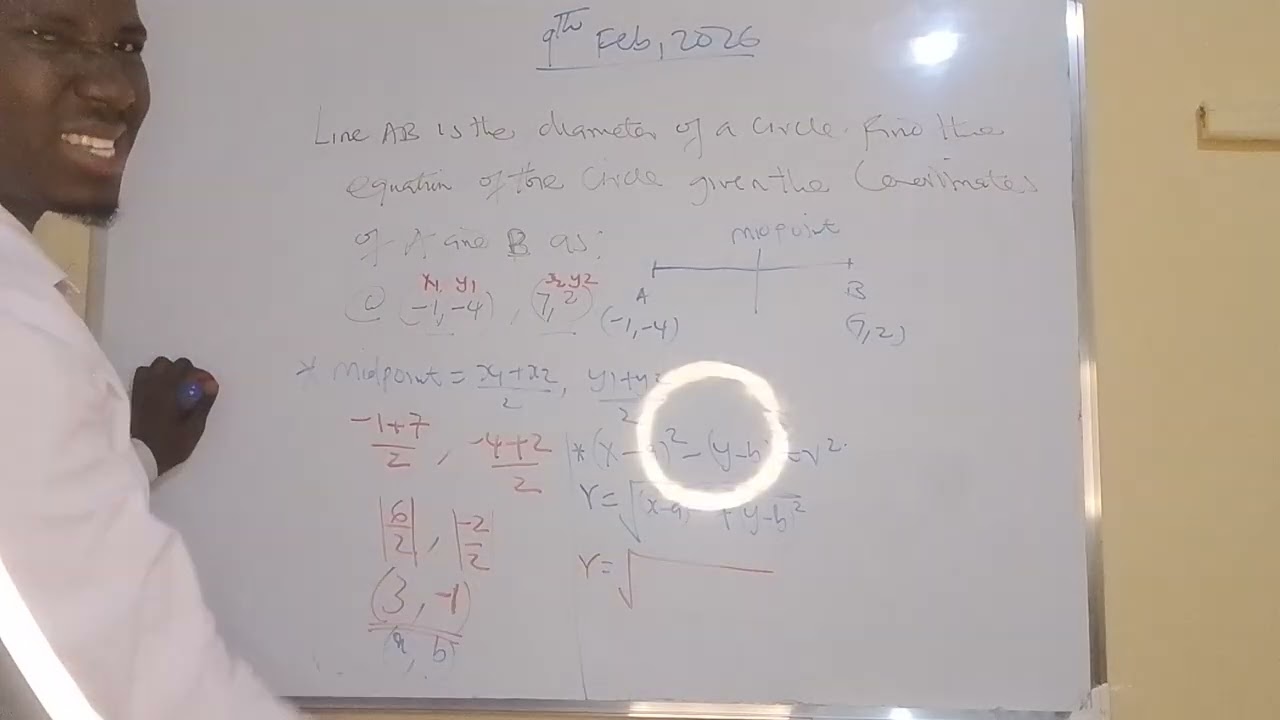 9th Feb, 2026
Line AB is the diameter of a circle. Find the
equation of the circle given the Coordinates
of A and B as:
midpoint
x1, y1 x2 y2
(-1, -4), (7, 2)
A B
(-1, -4) (7, 2)
* midpoint = x1+x2/2, y1+y2/2
-1+7/2, -4+2/2
* (x-a)² - (y-b) = r²
r = √(x-a) + (y-b)²
|6/2|, |-2/2|
r = √
(3, -1)
(a, b)